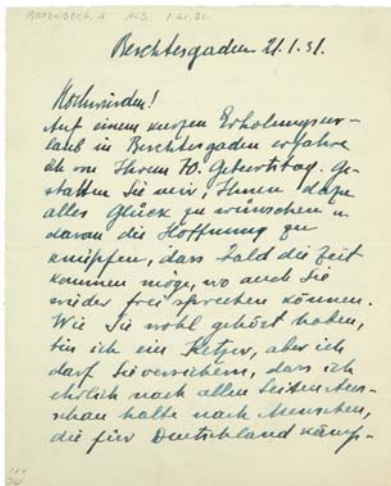 ROSENBERG, A ALS 1.21.31.
Berchtesgaden 21.1.31.
Hochwürden!
Auf einem kurzen Erholungsur-
laub in Berchtesgaden erfahre
ich von Ihrem 70. Geburtstag. Ge-
statten Sie mir, Ihnen dazu
alles Glück zu wünschen u.
daran die Hoffnung zu
knüpfen, dass bald die Zeit
kommen möge, wo auch Sie
wieder frei sprechen können.
Wie Sie wohl gehört haben,
bin ich ein Ketzer, aber ich
darf Sie versichern, dass ich
ehrlich nach allen Seiten Aus-
schau halte nach Menschen,
die für Deutschland kämp-